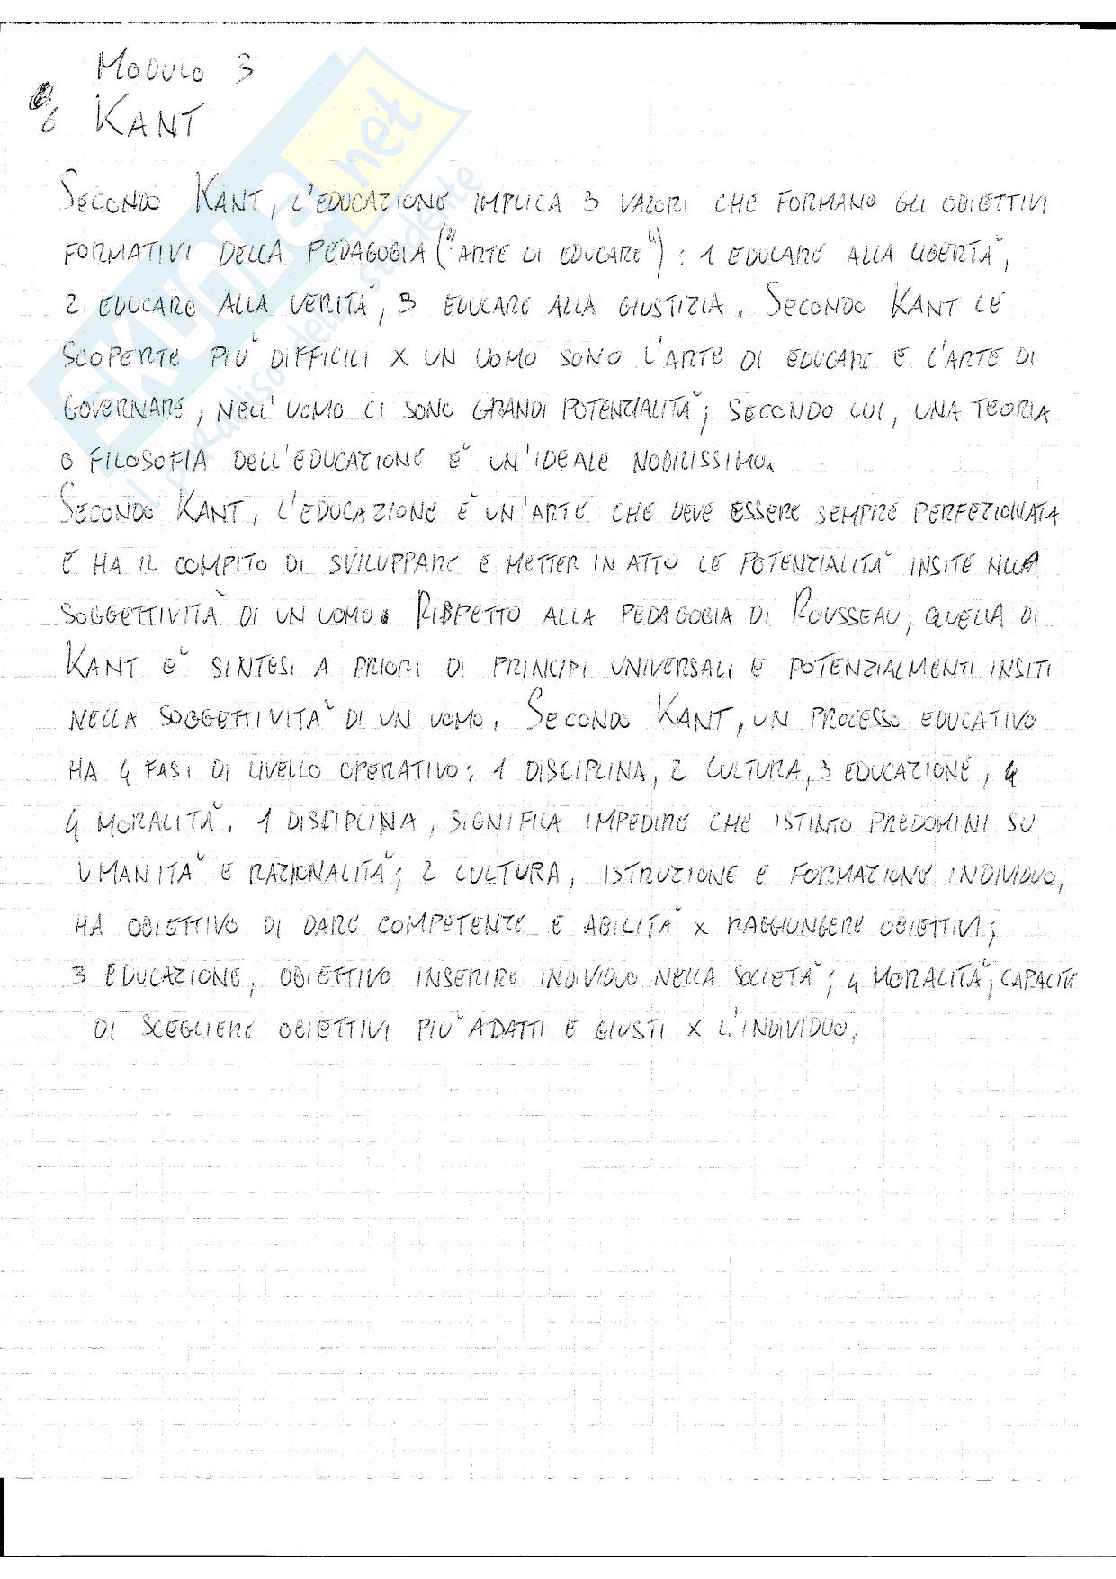 MODULO 3
6 KANT
SECONDO KANT, L'EDUCAZIONE IMPLICA 3 VALORI CHE FORMANO GLI OBIETTIVI
FORMATIVI DELLA PEDAGOGIA ("ARTE DI EDUCARE") : 1 EDUCARE ALLA LIBERTA',
2 EDUCARE ALLA VERITA', 3 EDUCARE ALLA GIUSTIZIA. SECONDO KANT LE
SCOPERTE PIU' DIFFICILI X UN UOMO SONO L'ARTE DI EDUCARE E L'ARTE DI
GOVERNARE, NELL'UOMO CI SONO GRANDI POTENZIALITA'; SECONDO LUI, UNA TEORIA
O FILOSOFIA DELL'EDUCAZIONE E' UN'IDEALE NOBILISSIMO.
SECONDO KANT, L'EDUCAZIONE E' UN'ARTE CHE DEVE ESSERE SEMPRE PERFEZIONATA
E HA IL COMPITO DI SVILUPPARE E METTER IN ATTO LE POTENZIALITA' INSITE NELLA
SOGGETTIVITA' DI UN UOMO. RISPETTO ALLA PEDAGOGIA DI ROUSSEAU, QUELLA DI
KANT E' SINTESI A PRIORI DI PRINCIPI UNIVERSALI E POTENZIALMENTI INSITI
NELLA SOGGETTIVITA' DI UN UOMO. SECONDO KANT, UN PROCESSO EDUCATIVO
HA 4 FASI DI LIVELLO OPERATIVO: 1 DISCIPLINA, 2 CULTURA, 3 EDUCAZIONE, 4
4 MORALITA'. 1 DISCIPLINA, SIGNIFICA IMPEDIRE CHE ISTINTO PREDOMINI SU
UMANITA' E RAZIONALITA'; 2 CULTURA, ISTRUZIONE E FORMAZIONE INDIVIDUO,
HA OBIETTIVO DI DARE COMPETENZE E ABILITA' X RAGGIUNGERE OBIETTIVI;
3 EDUCAZIONE, OBIETTIVO INSERIRE INDIVIDUO NELLA SOCIETA'; 4 MORALITA', CAPACITA'
DI SCEGLIERE OBIETTIVI PIU' ADATTI E GIUSTI X L'INDIVIDUO.
SKUOLA.net
il paradiso dello studente